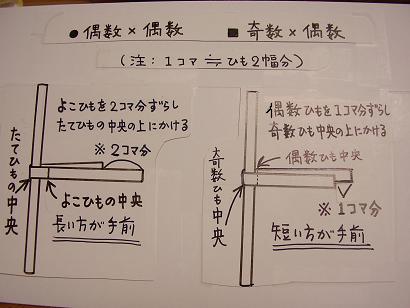 ●偶数×偶数
■奇数×偶数
(注:1コマ≒ひも2幅分)
よこひもを2コマ分ずらし
たてひもの中央の上にかける
※2コマ分
たてひもの中央
よこひもの中央
長い方が手前
偶数ひもを1コマ分ずらし
奇数ひも中央の上にかける
偶数ひも中央
奇数ひも中央
※1コマ分
短い方が手前